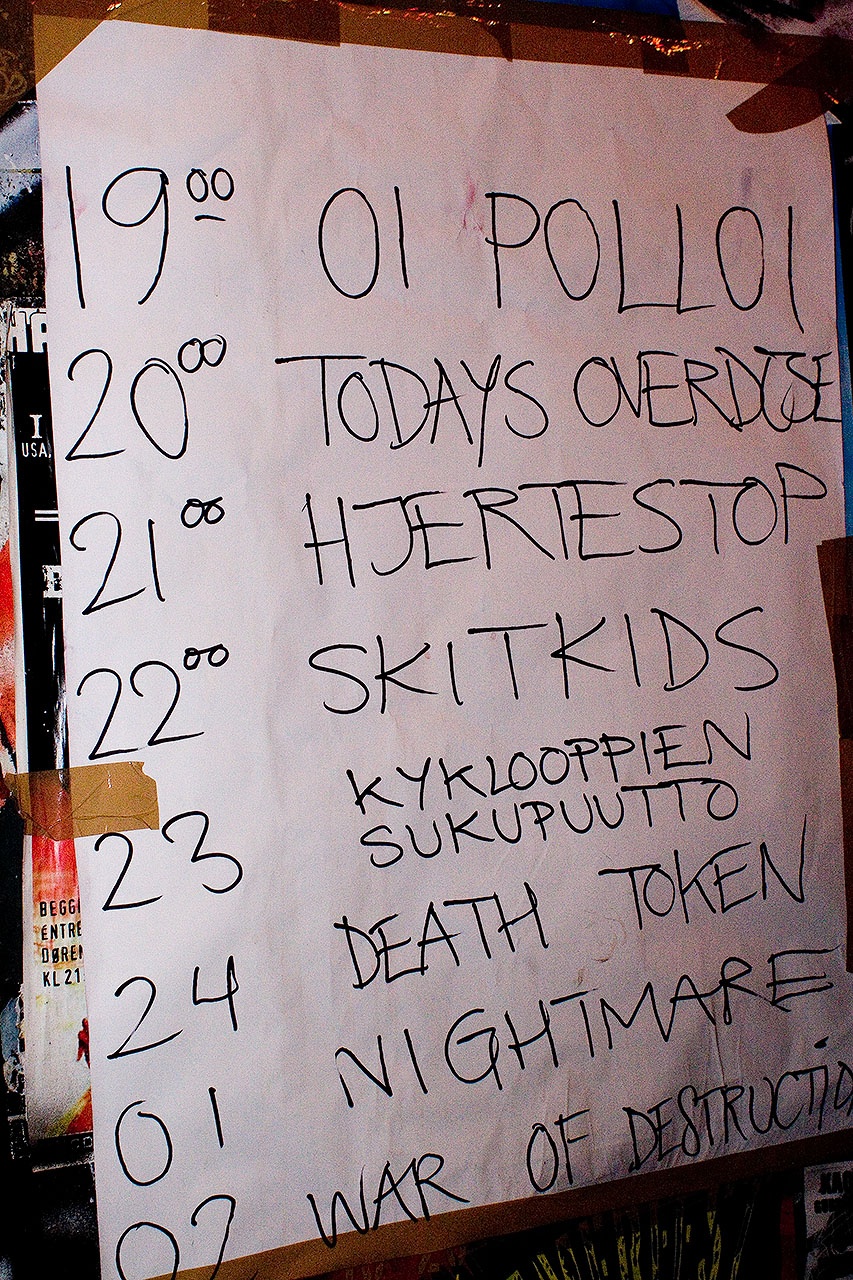 19 00 OI POLLOI
20 00 TODAYS OVERDOSE
21 00 HJERTESTOP
22 00 SKITKIDS
23 KYKLOOPPIEN
SUKUPUUTTO
24 DEATH TOKEN
01 NIGHTMARE
02 WAR OF DESTRUCTIO
I
USA,
BEGG
ENTRE
DØREN
KL 21